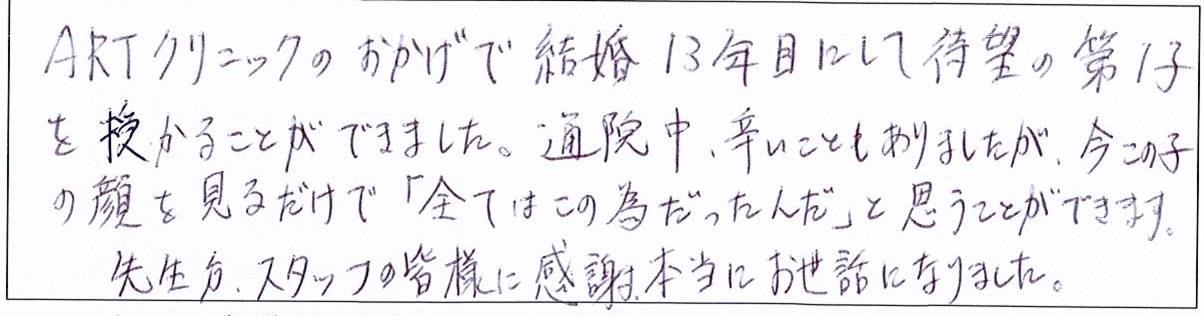 ARTクリニックのおかげで結婚13年目にして待望の第1子
を授かることができました。通院中、辛いこともありましたが、今この子
の顔を見るだけで「全てはこの為だったんだ」と思うことができます。
先生方、スタッフの皆様に感謝、本当にお世話になりました。